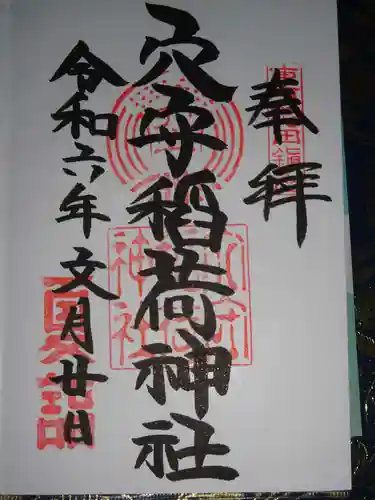 奉拝
穴守稲荷神社
令和六年文月廿日